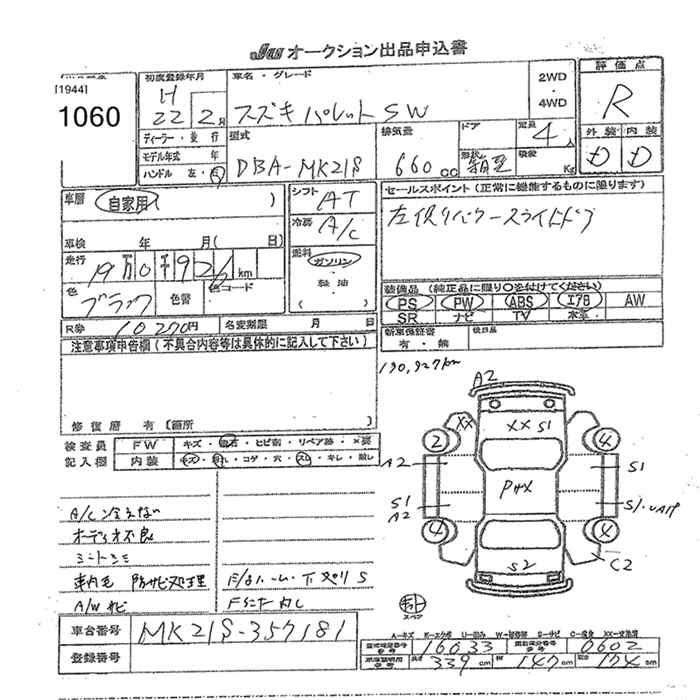 JU オークション出品申込書
[1944]
1060
初度登録年月
H
22 2月
車名・グレード
スズキ パレット SW
2WD
・
4WD
評価点
R
ディーラー・並行
モデル年式 年
ハンドル 左・右
型式
DBA-MK21S
排気量
660 cc
ドア
形状
箱型
定員
4人
積載
Kg
外装 内装
D D
車歴
自家用
車検 年 月( 日)
走行
19万0千926km
色
ブラック
色替
色コード
シフト
AT
冷房
A/C
燃料
ガソリン
・
軽油
セールスポイント(正常に機能するものに限ります)
左側パワースライドドア
装備品(純正品に限り○を付けてください)
PS PW ABS エアB AW
SR ナビ TV 本革
新車保証書
有・無
R券 10270円
名変期限 月 日
注意事項申告欄(不具合内容等は具体的に記入して下さい)
修復歴 有〔箇所 〕
190,927km
検査員
記入欄
FW キズ・飛石・ヒビ割・リペア跡・×要
内装 キズ・汚れ・コゲ・穴・スレ・キレ・欠し
A2
XX
XX S1
2
4
A2
S1
PXX
S1
A2
S1・UA1P
4
4
S2
C2
スペア
A/C冷えない
オーディオ不良
シートシミ
車内毛 防サビ処理
A/Wサビ
車台番号
MK21S-357181
登録番号
A-キズ E-エクボ U-凹み W-補修跡 S-サビ C-腐食 XX-交換済
型式指定番号 16033 類別区分番号 0602
長さ 339cm 幅 147cm 高さ 174cm